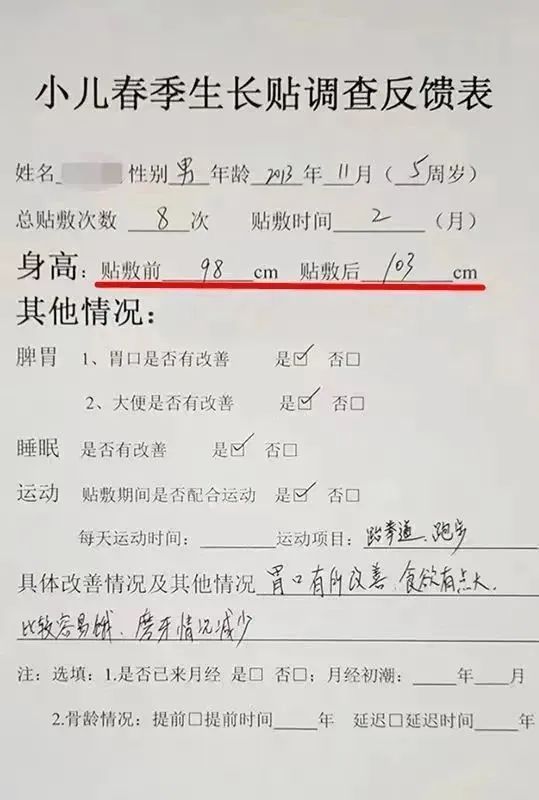 小儿春季生长贴调查反馈表
姓名 性别 男 年龄 2013 年 11 月（ 5 周岁）
总贴敷次数 8 次 贴敷时间 2 （月）
身高：贴敷前 98 cm 贴敷后 103 cm
其他情况：
脾胃 1、胃口是否有改善 是☑ 否□
2、大便是否有改善 是☑ 否□
睡眠 是否有改善 是☑ 否□
运动 贴敷期间是否配合运动 是☑ 否□
每天运动时间：________ 运动项目：跆拳道、跑步
具体改善情况及其他情况 胃口有所改善、食欲有点大、
比较容易饿、磨牙情况减少
注：选填：1.是否已来月经 是□ 否□；月经初潮：____年____月
2.骨龄情况：提前□提前时间____年 延迟□延迟时间____年